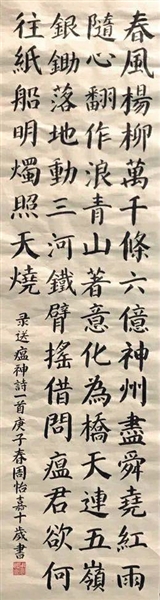 春風楊柳萬千條六億神州盡舜堯紅雨
隨心翻作浪青山著意化為橋天連五嶺
銀鋤落地動三河鐵臂搖借問瘟君欲何
往紙船明燭照天燒
录送瘟神詩一首庚子春周怡嘉十歲書